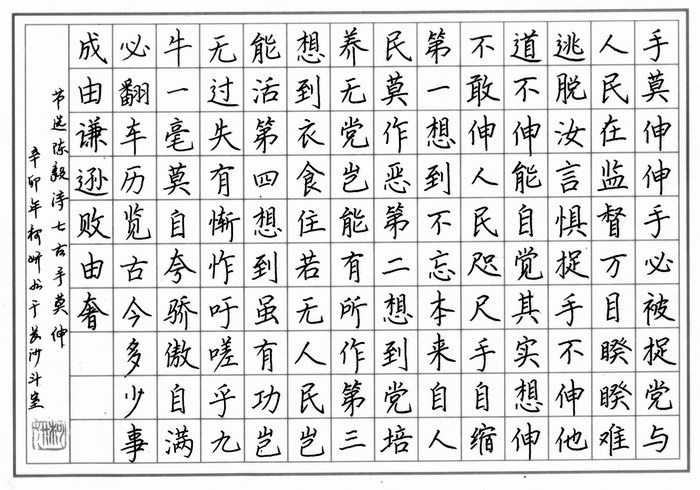 手莫伸伸手必被捉党与
人民在监督万目睽睽难
逃脱汝言惧捉手不伸他
道不伸能自觉其实想伸
不敢伸人民咫尺手自缩
第一想到不忘本来自人
民莫作恶第二想到党培
养无党岂能有所作第三
想到衣食住若无人民岂
能活第四想到虽有功岂
无过失有惭怍吁嗟乎九
牛一毫莫自夸骄傲自满
必翻车历览古今多少事
成由谦逊败由奢
节选陈毅诗七古手莫伸
辛卯年柯书于长沙斗室